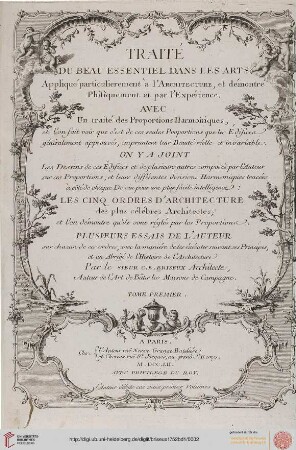 TRAITÉ
DU BEAU ESSENTIEL DANS LES ARTS
Appliqué particulierement à l'Architecture, et démontré
Phisiquement et par l'Expérience.
AVEC
Un traité des Proportions Harmoniques,
et l'on fait voir que c'est de ces seules Proportions que les Edifices
généralement approuvés, empruntent leur Beauté réelle et invariable.
ON Y A JOINT
Les Desseins de ces Edifices et de plusieurs autres composés par l'Auteur
sur ces Proportions, et leurs différentes divisions Harmoniques tracées
à côté de chaque Dessein pour une plus facile intelligence:
LES CINQ ORDRES D'ARCHITECTURE
des plus célèbres Architectes,
et l'on démontre qu'ils sont réglés par les Proportions.
PLUSIEURS ESSAIS DE L'AUTEUR
sur chacun de ces ordres, avec la manière de les exécuter suivant ses Principes,
et un Abrégé de l'Histoire de l'Architecture
Par le SIEUR C.E. BRISEUX Architecte,
Auteur de l'Art de Bâtir les Maisons de Campagne.
TOME PREMIER.
A PARIS.
Chez
M.DCC.LII.
AVEC PRIVILEGE DU ROY.
http://digi.ub.uni-heidelberg.de/diglit/briseux1752bd1/0002